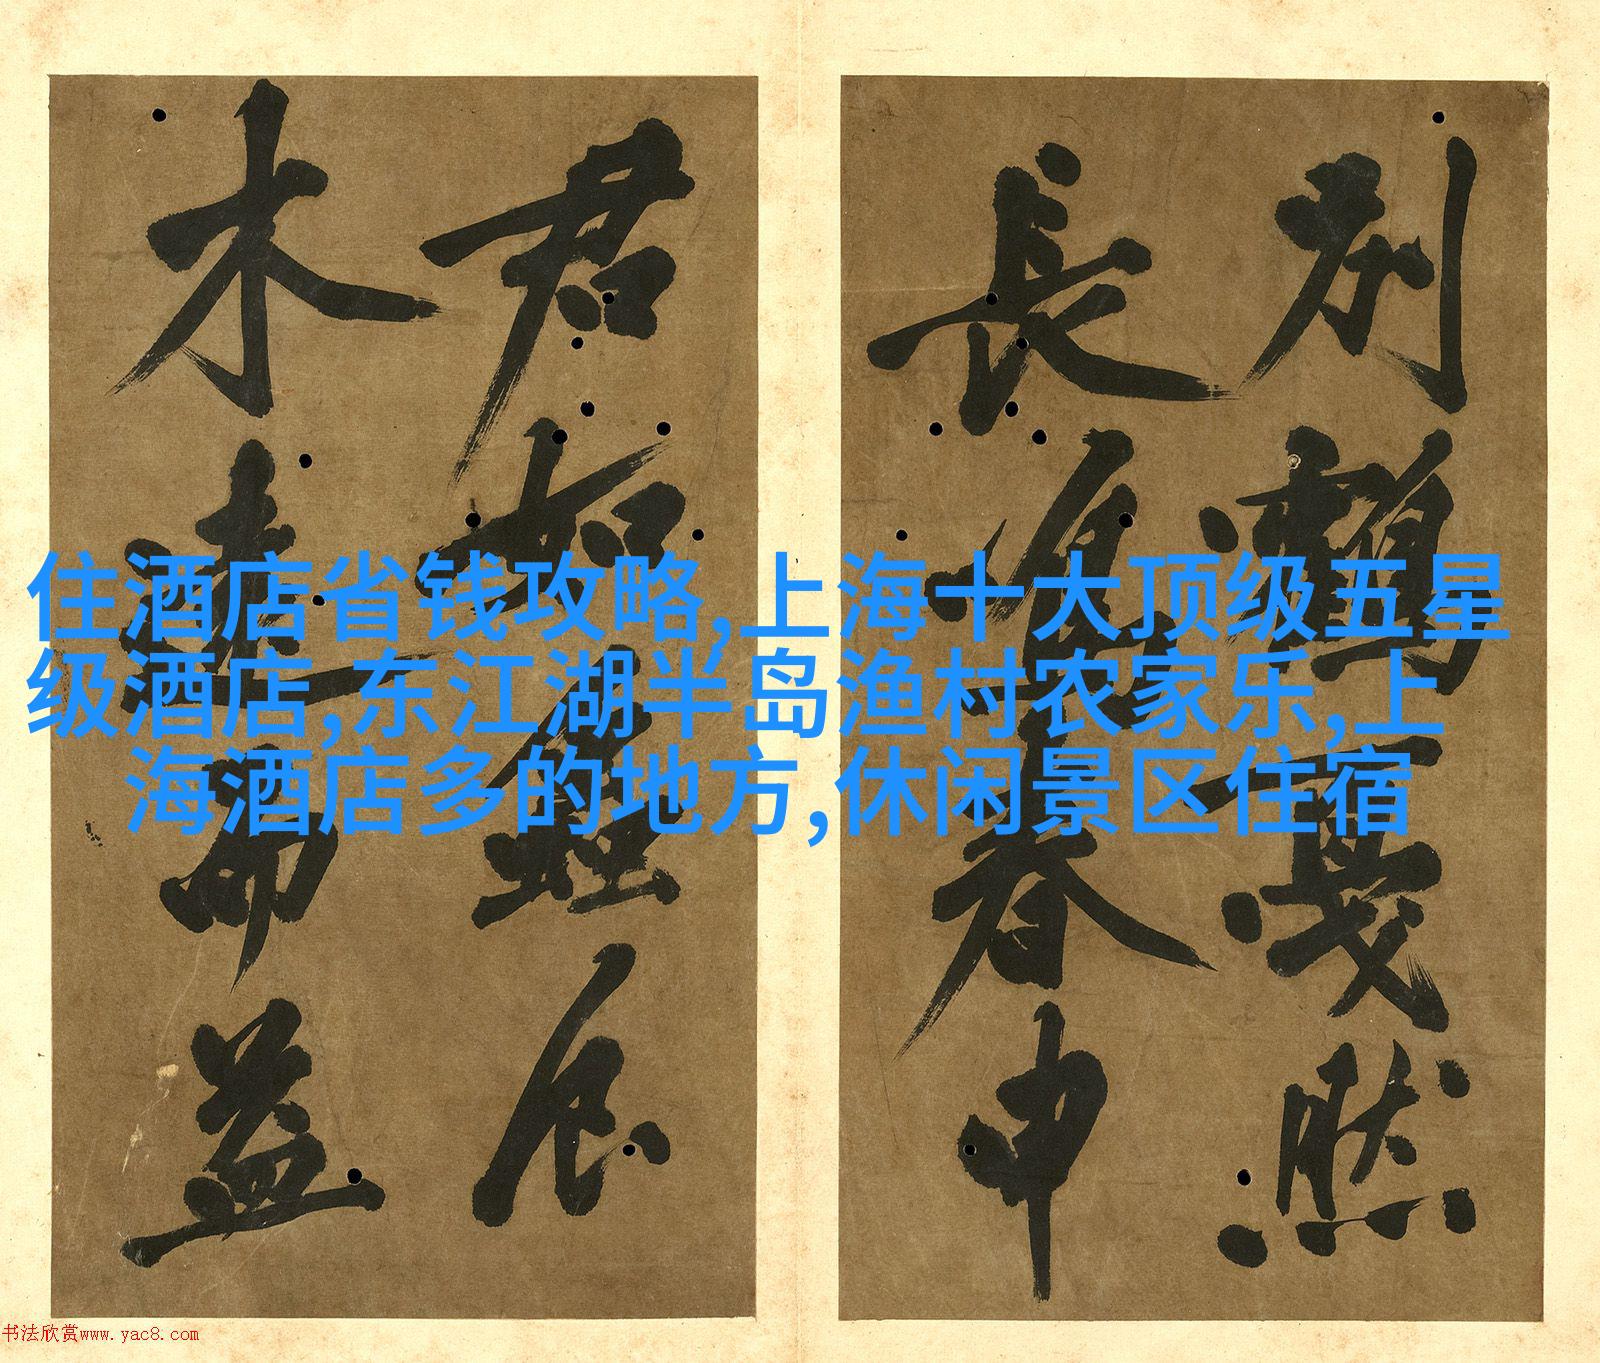 别鶴一戛然
長春申
君如
木遠而益
住酒店省钱攻略,上海十大顶级五星
级酒店,东江湖半岛渔村农家乐,上
海酒店多的地方,休闲景区住宿
书法欣赏www.yac8.com